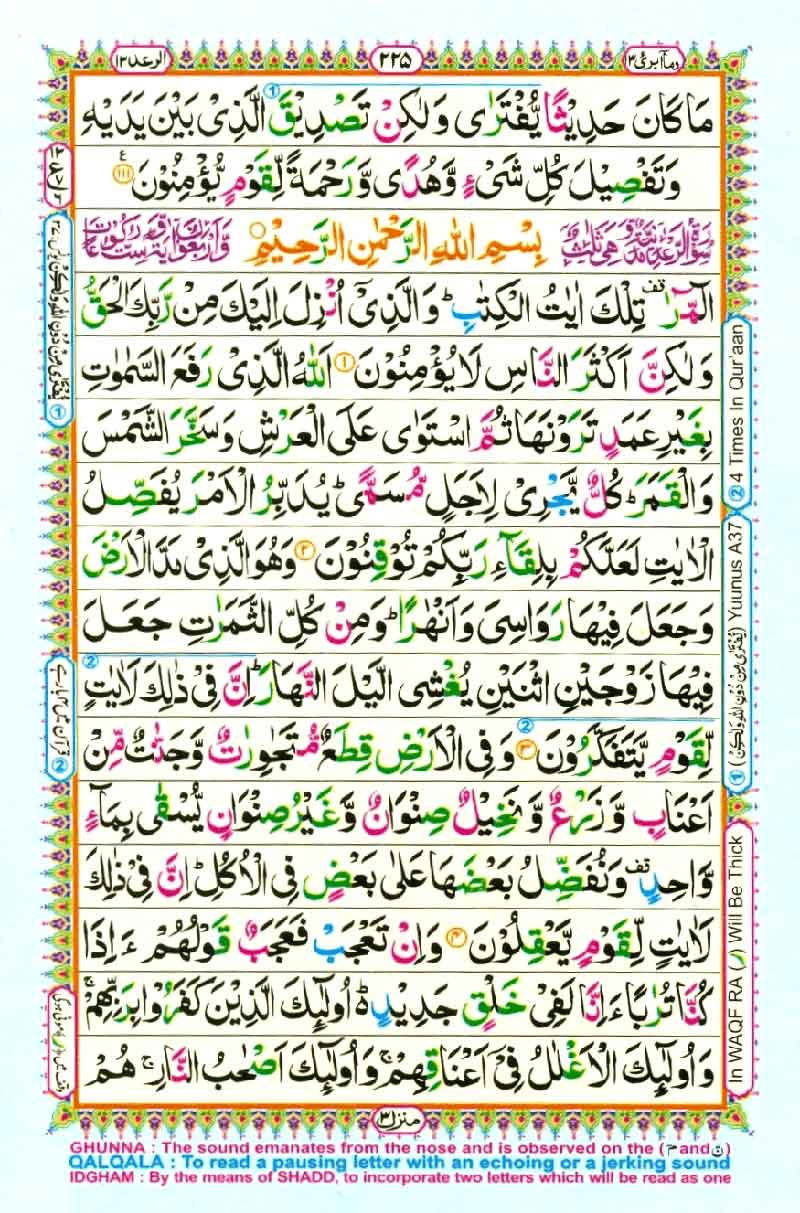 وما ابرئ ١٣
٢٢٥
الرعد ١٣
مَا كَانَ حَدِيْثًا يُّفْتَرٰى وَلٰكِنْ تَصْدِيْقَ الَّذِىْ بَيْنَ يَدَيْهِ
وَتَفْصِيْلَ كُلِّ شَىْءٍ وَّهُدًى وَّرَحْمَةً لِّقَوْمٍ يُّؤْمِنُوْنَ ١١١
بِسْمِ اللّٰهِ الرَّحْمٰنِ الرَّحِيْمِ
الٓمّٓرٰ تِلْكَ اٰيٰتُ الْكِتٰبِ ؕ وَالَّذِىْۤ اُنْزِلَ اِلَيْكَ مِنْ رَّبِّكَ الْحَقُّ
وَلٰكِنَّ اَكْثَرَ النَّاسِ لَا يُؤْمِنُوْنَ ١ اَللّٰهُ الَّذِىْ رَفَعَ السَّمٰوٰتِ
بِغَيْرِ عَمَدٍ تَرَوْنَهَا ثُمَّ اسْتَوٰى عَلَى الْعَرْشِ وَسَخَّرَ الشَّمْسَ
وَالْقَمَرَ ؕ كُلٌّ يَّجْرِىْ لِاَجَلٍ مُّسَمًّى ؕ يُدَبِّرُ الْاَمْرَ يُفَصِّلُ
الْاٰيٰتِ لَعَلَّكُمْ بِلِقَآءِ رَبِّكُمْ تُوْقِنُوْنَ ٢ وَهُوَ الَّذِىْ مَدَّ الْاَرْضَ
وَجَعَلَ فِيْهَا رَوَاسِىَ وَاَنْهٰرًا ؕ وَمِنْ كُلِّ الثَّمَرٰتِ جَعَلَ
فِيْهَا زَوْجَيْنِ اثْنَيْنِ يُغْشِى الَّيْلَ النَّهَارَ ؕ اِنَّ فِىْ ذٰلِكَ لَاٰيٰتٍ
لِّقَوْمٍ يَّتَفَكَّرُوْنَ ٣ وَفِى الْاَرْضِ قِطَعٌ مُّتَجٰوِرٰتٌ وَّجَنّٰتٌ مِّنْ
اَعْنَابٍ وَّزَرْعٌ وَّنَخِيْلٌ صِنْوَانٌ وَّغَيْرُ صِنْوَانٍ يُّسْقٰى بِمَآءٍ
وَّاحِدٍ وَنُفَضِّلُ بَعْضَهَا عَلٰى بَعْضٍ فِى الْاُكُلِ ؕ اِنَّ فِىْ ذٰلِكَ
لَاٰيٰتٍ لِّقَوْمٍ يَّعْقِلُوْنَ ٤ وَاِنْ تَعْجَبْ فَعَجَبٌ قَوْلُهُمْ ءَاِذَا
كُنَّا تُرٰبًا ءَاِنَّا لَفِىْ خَلْقٍ جَدِيْدٍ ؕ اُولٰٓئِكَ الَّذِيْنَ كَفَرُوْا بِرَبِّهِمْ ۚ
وَاُولٰٓئِكَ الْاَغْلٰلُ فِىْۤ اَعْنَاقِهِمْ ۚ وَاُولٰٓئِكَ اَصْحٰبُ النَّارِ ۚ هُمْ
② 4 Times In Qur'aan
① (يُّفْتَرٰى مِنْ دُوْنِ اللّٰهِ وَلٰكِنْ) Yuunus A37
In WAQF RA (ر) Will Be Thick
منزل ٣
GHUNNA : The sound emanates from the nose and is observed on the (م and ن)
QALQALA : To read a pausing letter with an echoing or a jerking sound
IDGHAM : By the means of SHADD, to incorporate two letters which will be read as one